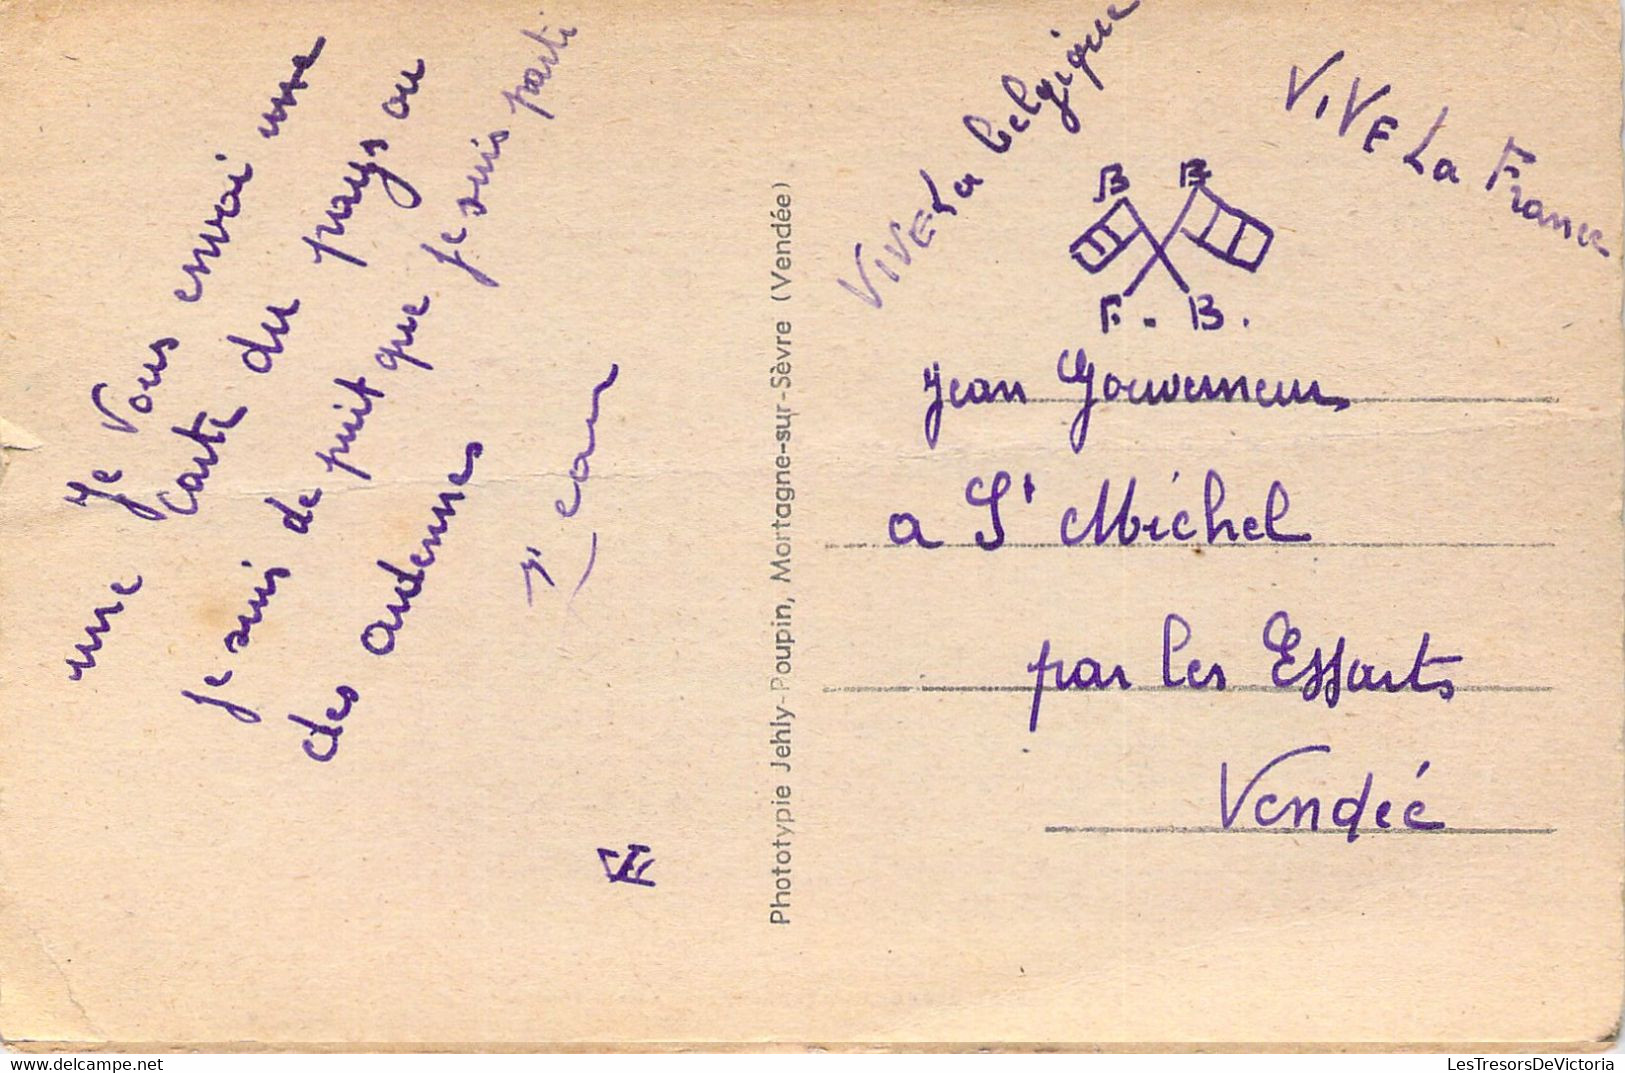 Je Vous envoi une
une carte du pays ou
je suis de puit que je suis parti
des ardennes
Jean
F
Phototypie Jehly-Poupin, Mortagne-sur-Sèvre (Vendée)
VIVE La belgique
VIVE La France
B B
F. B.
Jean Gouverneur
a St Michel
par les Essarts
Vendée
delcampe.net
LesTresorsDeVictoria